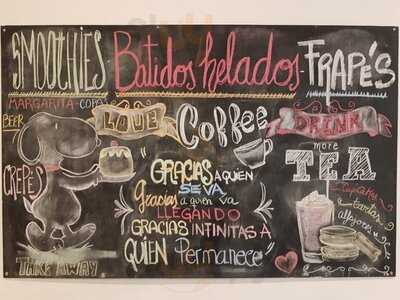 SMOOTHIES - Batidos helados - FRAPÉS
MARGARITA - COPA
BEER
LOVE
Coffee
DRINK
more
TEA
CREPES
"GRACIAS A QUIEN
SE VA
Gracias a quien va
LLEGANDO
GRACIAS INFINITAS A
QUIEN Permanece"
CupCakes
tartas
alfajores
TAKE AWAY